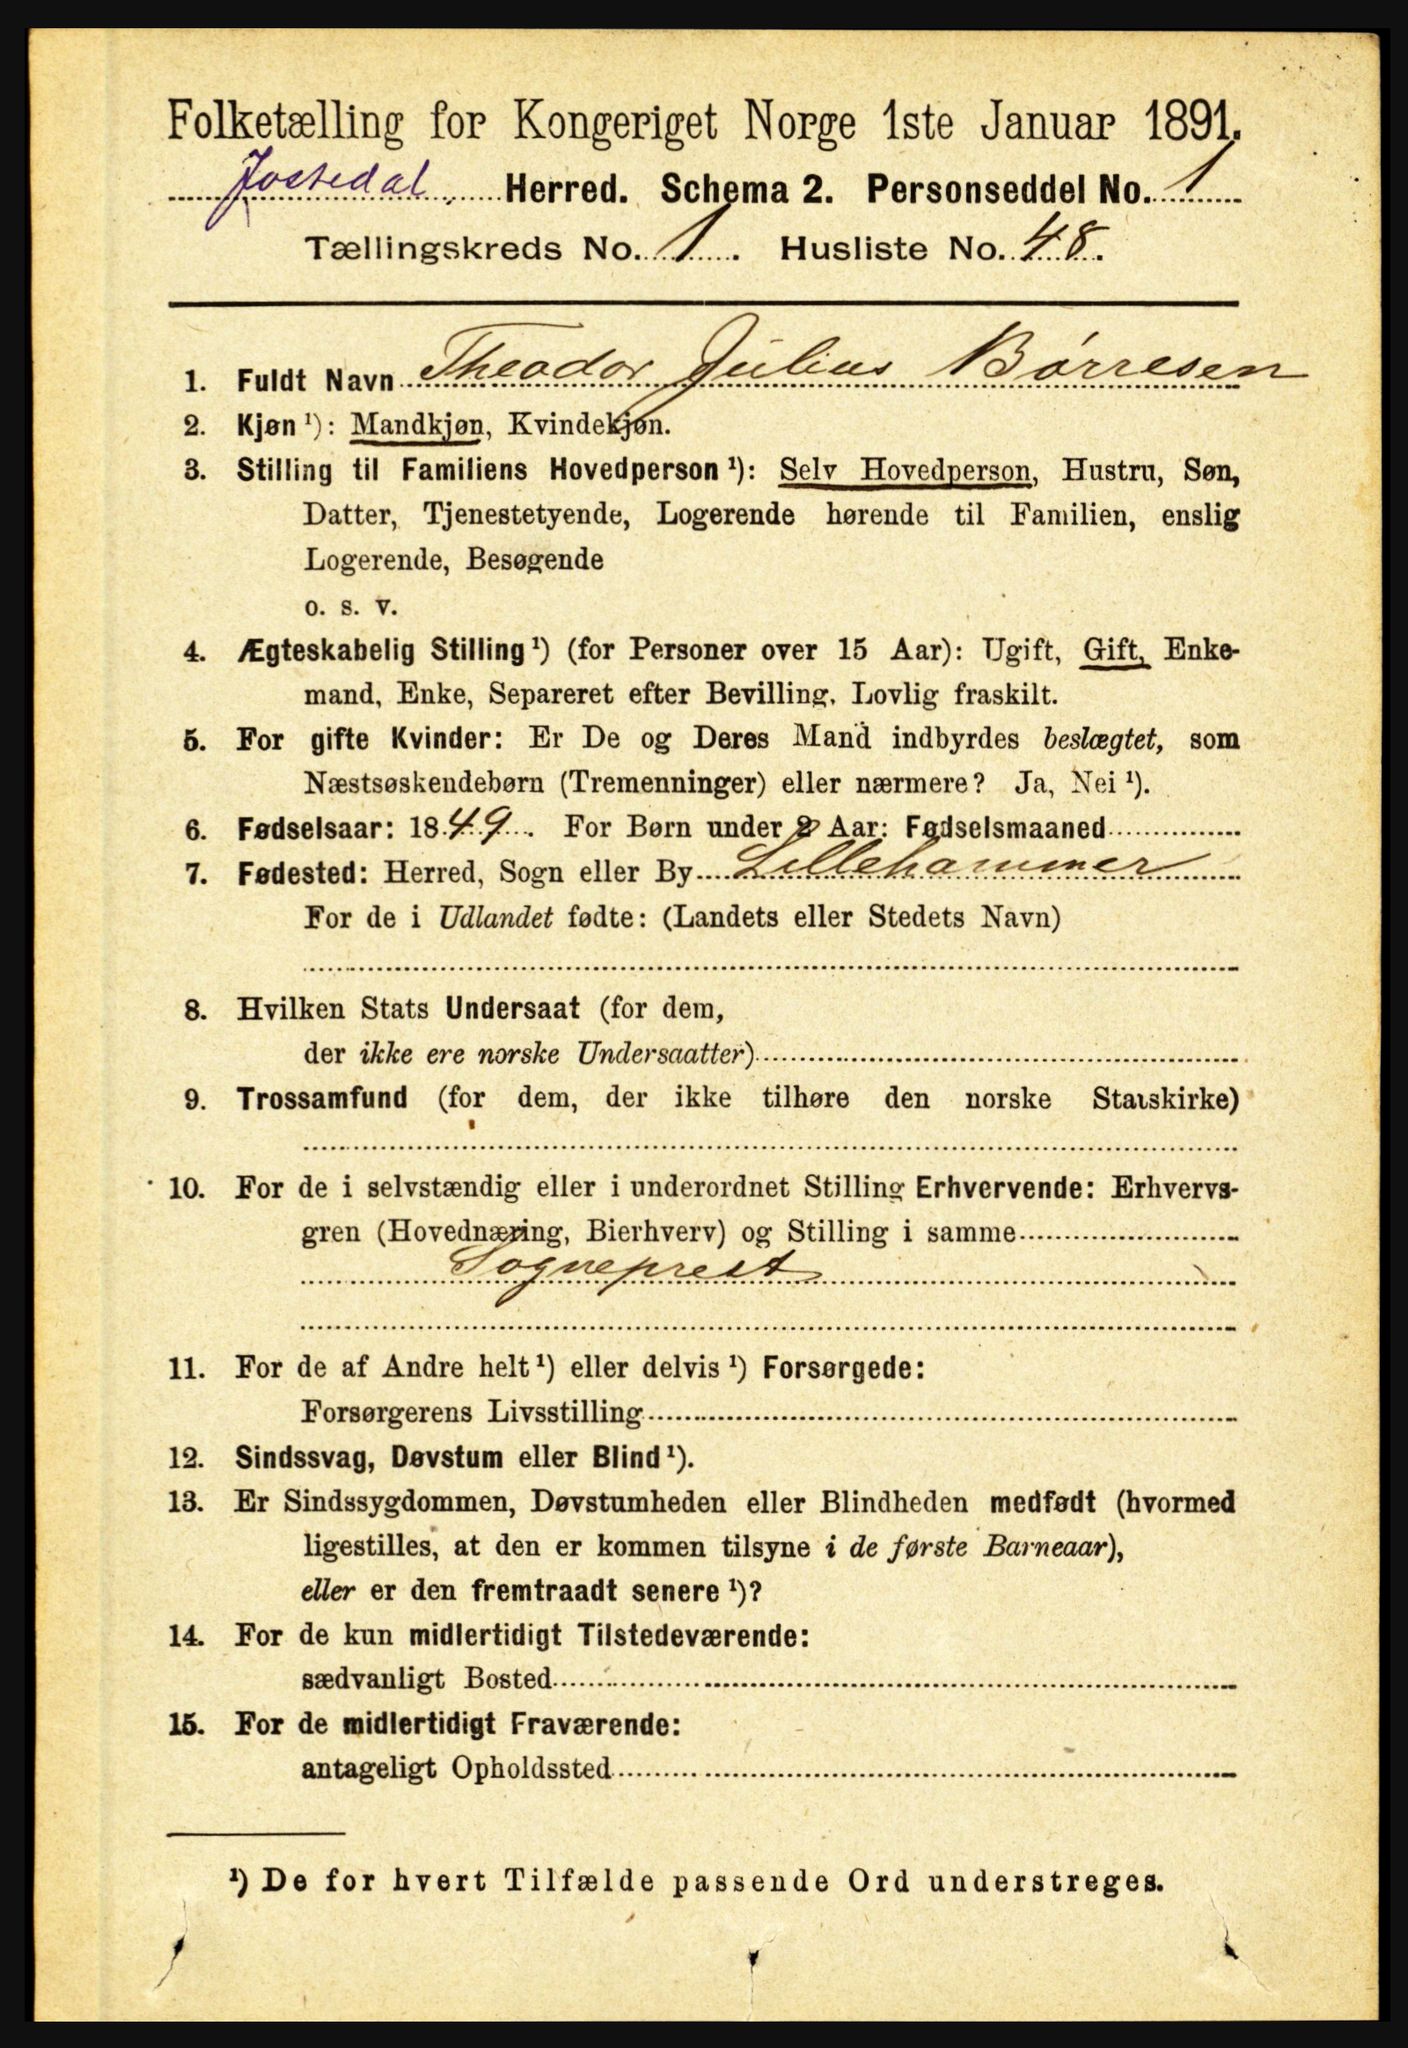 Folketælling for Kongeriget Norge 1ste Januar 1891.
Jostedal Herred. Schema 2. Personseddel No. 1
Tællingskreds No. 1. Husliste No. 48.
1. Fuldt Navn Theodor Julius Börresen
2. Kjøn ¹): Mandkjøn, Kvindekjøn.
3. Stilling til Familiens Hovedperson ¹): Selv Hovedperson, Hustru, Søn,
Datter, Tjenestetyende, Logerende hørende til Familien, enslig
Logerende, Besøgende
o. s. v.
4. Ægteskabelig Stilling ¹) (for Personer over 15 Aar): Ugift, Gift, Enke-
mand, Enke, Separeret efter Bevilling, Lovlig fraskilt.
5. For gifte Kvinder: Er De og Deres Mand indbyrdes beslægtet, som
Næstsøskendebørn (Tremenninger) eller nærmere? Ja, Nei ¹).
6. Fødselsaar: 1849. For Børn under 2 Aar: Fødselsmaaned
7. Fødested: Herred, Sogn eller By Lillehammer
For de i Udlandet fødte: (Landets eller Stedets Navn)
8. Hvilken Stats Undersaat (for dem,
der ikke ere norske Undersaatter)
9. Trossamfund (for dem, der ikke tilhøre den norske Statskirke)
10. For de i selvstændig eller i underordnet Stilling Erhvervende: Erhvervs-
gren (Hovednæring, Bierhverv) og Stilling i samme
Sogneprest
11. For de af Andre helt ¹) eller delvis ¹) Forsørgede:
Forsørgerens Livsstilling
12. Sindssvag, Døvstum eller Blind ¹).
13. Er Sindssygdommen, Døvstumheden eller Blindheden medfødt (hvormed
ligestilles, at den er kommen tilsyne i de første Barneaar),
eller er den fremtraadt senere ¹)?
14. For de kun midlertidigt Tilstedeværende:
sædvanligt Bosted
15. For de midlertidigt Fraværende:
antageligt Opholdssted
¹) De for hvert Tilfælde passende Ord understreges.